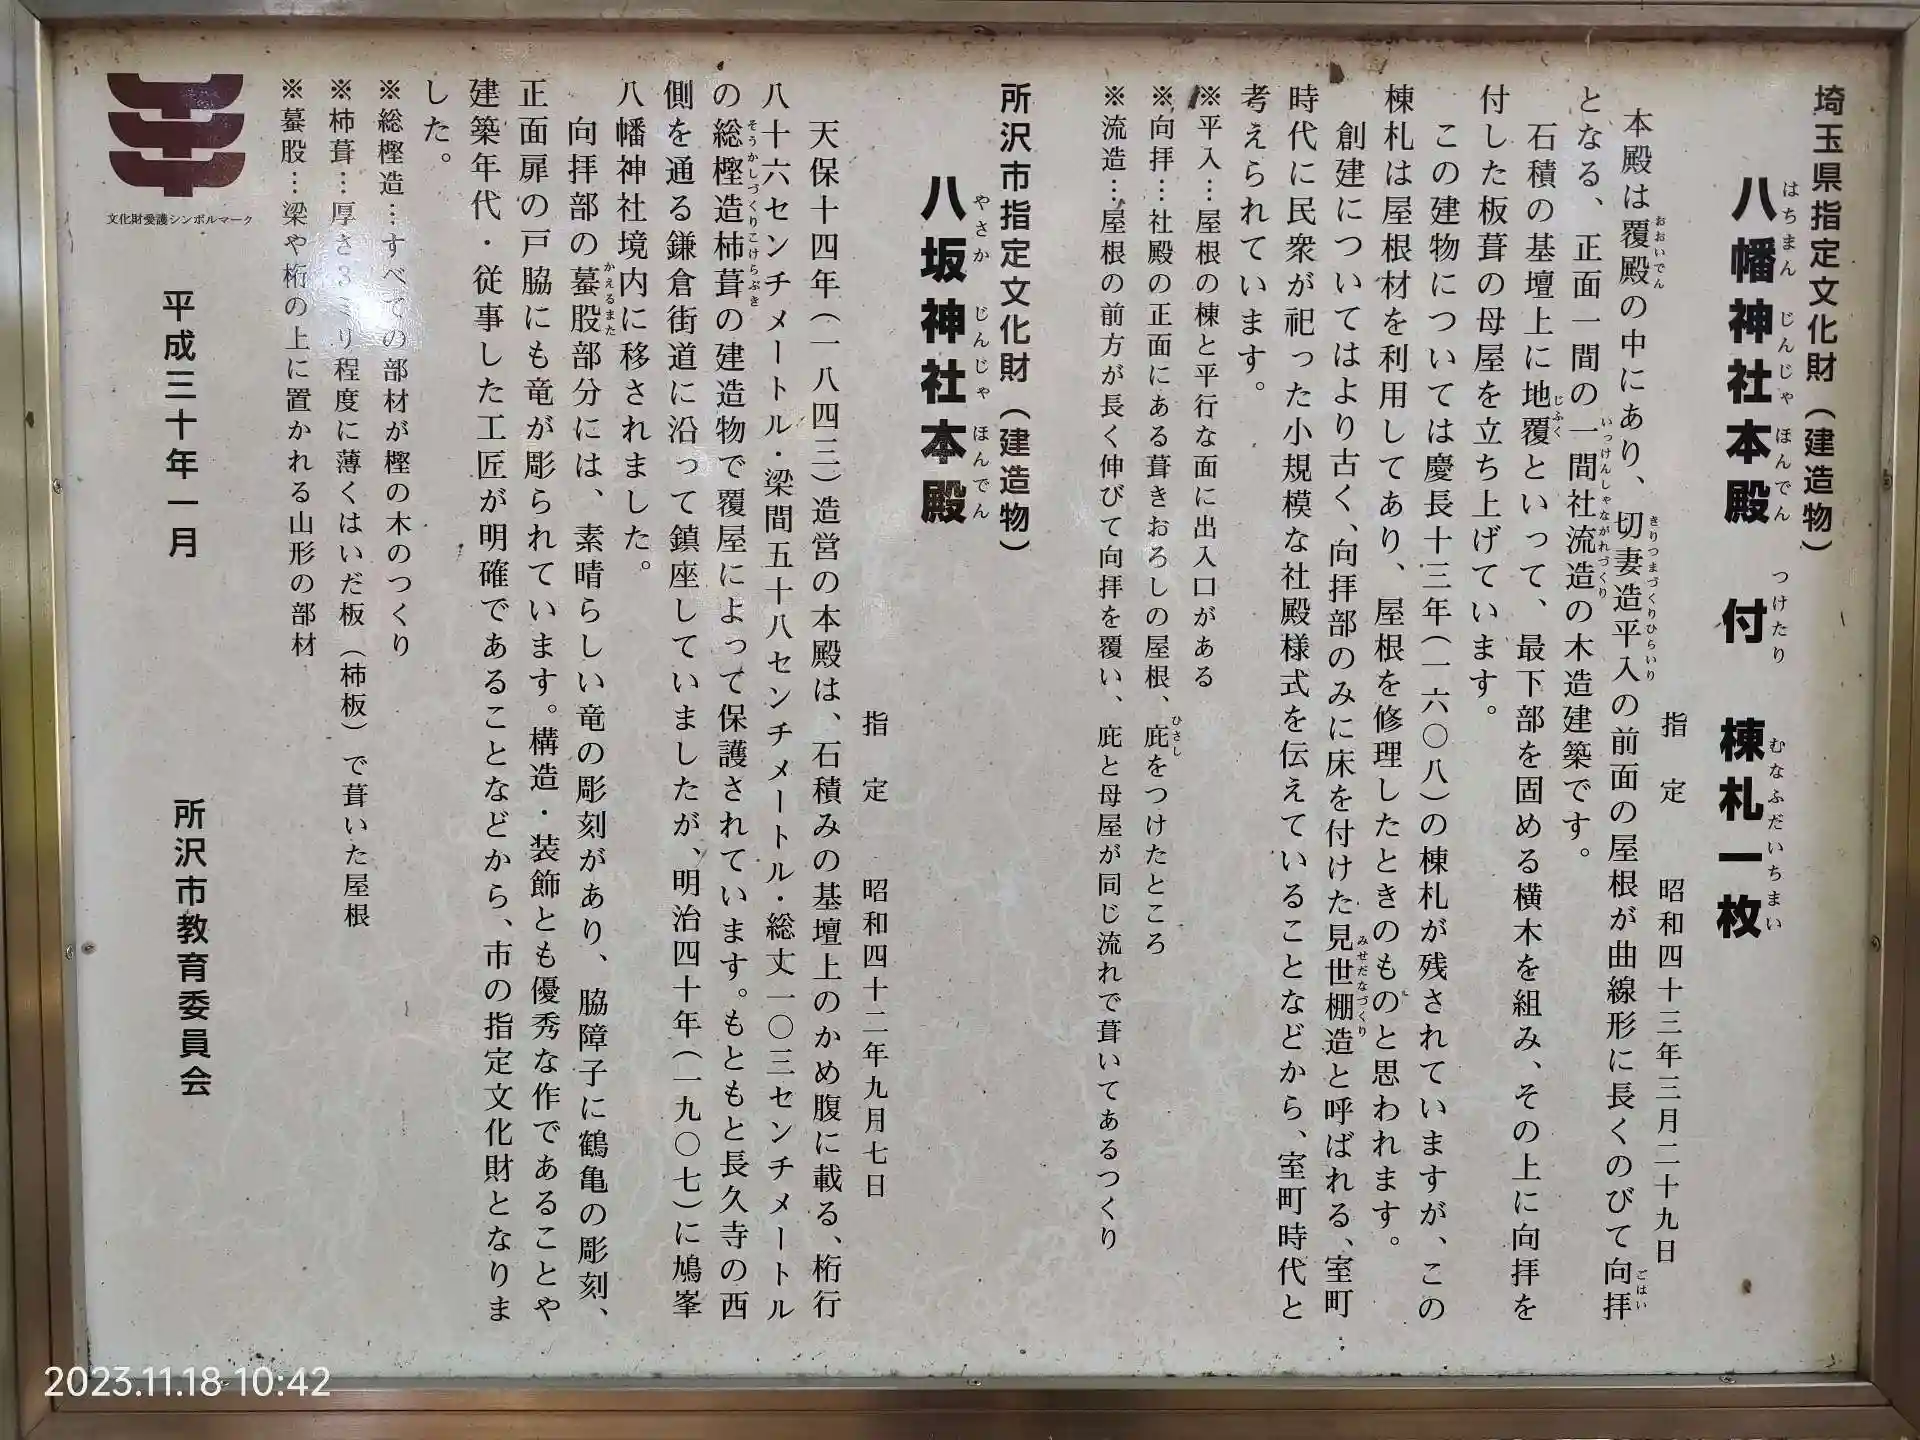 埼玉県指定文化財（建造物）
八幡神社本殿　付　棟札一枚
はちまん　じんじゃ　ほんでん　つけたり　むなふだいちまい
指　定　　昭和四十三年三月二十九日
本殿は覆殿の中にあり、切妻造平入の前面の屋根が曲線形に長くのびて向拝
おおいでん　きりつまづくりひらいり　ごはい
となる、正面一間の一間社流造の木造建築です。
いっけんしゃながれづくり
石積の基壇上に地覆といって、最下部を固める横木を組み、その上に向拝を
じふく
付した板葺の母屋を立ち上げています。
この建物については慶長十三年（一六〇八）の棟札が残されていますが、この
棟札は屋根材を利用してあり、屋根を修理したときのものと思われます。
創建についてはより古く、向拝部のみに床を付けた見世棚造と呼ばれる、室町
みせだなづくり
時代に民衆が祀った小規模な社殿様式を伝えていることなどから、室町時代と
考えられています。
※平入…屋根の棟と平行な面に出入口がある
※向拝…社殿の正面にある葺きおろしの屋根、庇をつけたところ
ひさし
※流造…屋根の前方が長く伸びて向拝を覆い、庇と母屋が同じ流れで葺いてあるつくり
所沢市指定文化財（建造物）
八坂神社本殿
やさか　じんじゃ　ほんでん
指　定　　昭和四十二年九月七日
天保十四年（一八四三）造営の本殿は、石積みの基壇上のかめ腹に載る、桁行
八十六センチメートル・梁間五十八センチメートル・総丈一〇三センチメートル
の総樫造柿葺の建造物で覆屋によって保護されています。もともと長久寺の西
そうかしづくりこけらぶき
側を通る鎌倉街道に沿って鎮座していましたが、明治四十年（一九〇七）に鳩峯
八幡神社境内に移されました。
向拝部の蟇股部分には、素晴らしい竜の彫刻があり、脇障子に鶴亀の彫刻、
かえるまた
正面扉の戸脇にも竜が彫られています。構造・装飾とも優秀な作であることや
建築年代・従事した工匠が明確であることなどから、市の指定文化財となりま
した。
※総樫造…すべての部材が樫の木のつくり
※柿葺…厚さ３ミリ程度に薄くはいだ板（柿板）で葺いた屋根
※蟇股…梁や桁の上に置かれる山形の部材
文化財愛護シンボルマーク
平成三十年一月
所沢市教育委員会
2023.11.18 10:42